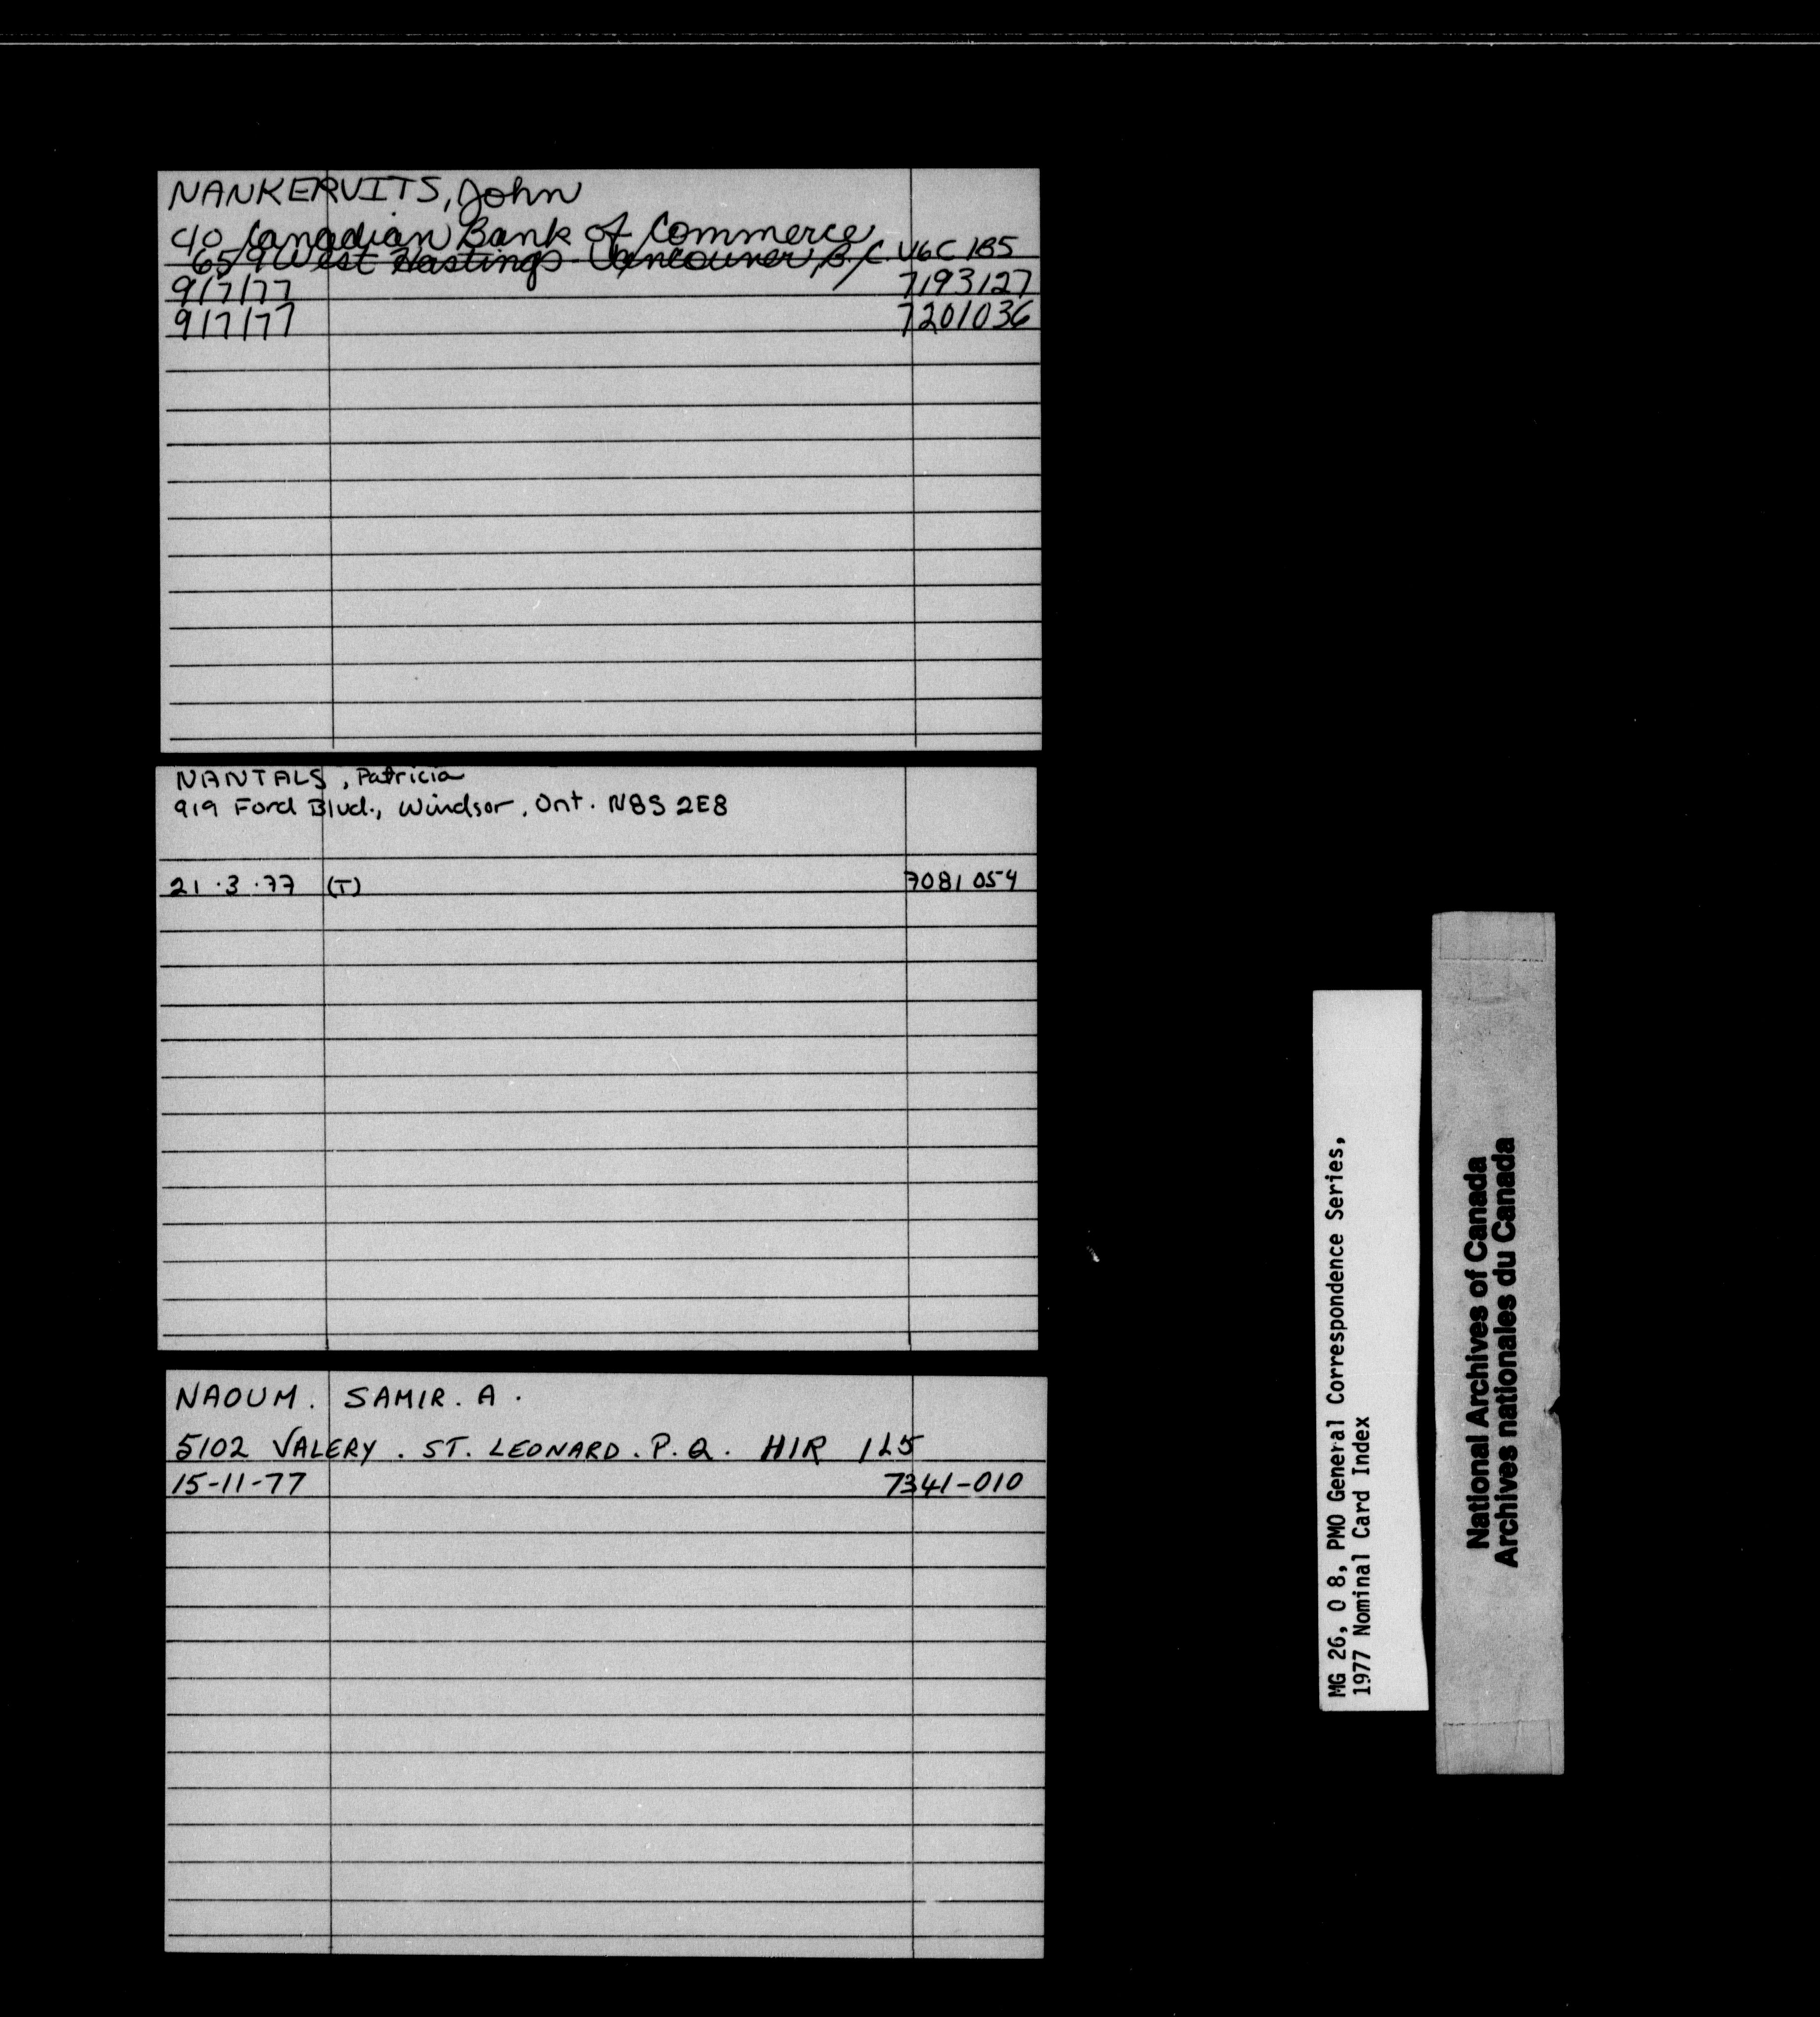 NANKERVITS, John
c/o Canadian Bank of Commerce
659 West Hastings Vancouver, B.C. V6C 1B5
9/7/77 7193127
9/7/77 7201036
NANTALS, Patricia
919 Ford Blvd., Windsor, Ont. N8S 2E8
21.3.77 (T) 7081 054
NAOUM. SAMIR. A.
5102 VALERY. ST. LEONARD. P.Q. H1R 1L5
15-11-77 7341-010
MG 26, O 8, PMO General Correspondence Series,
1977 Nominal Card Index
National Archives of Canada
Archives nationales du Canada